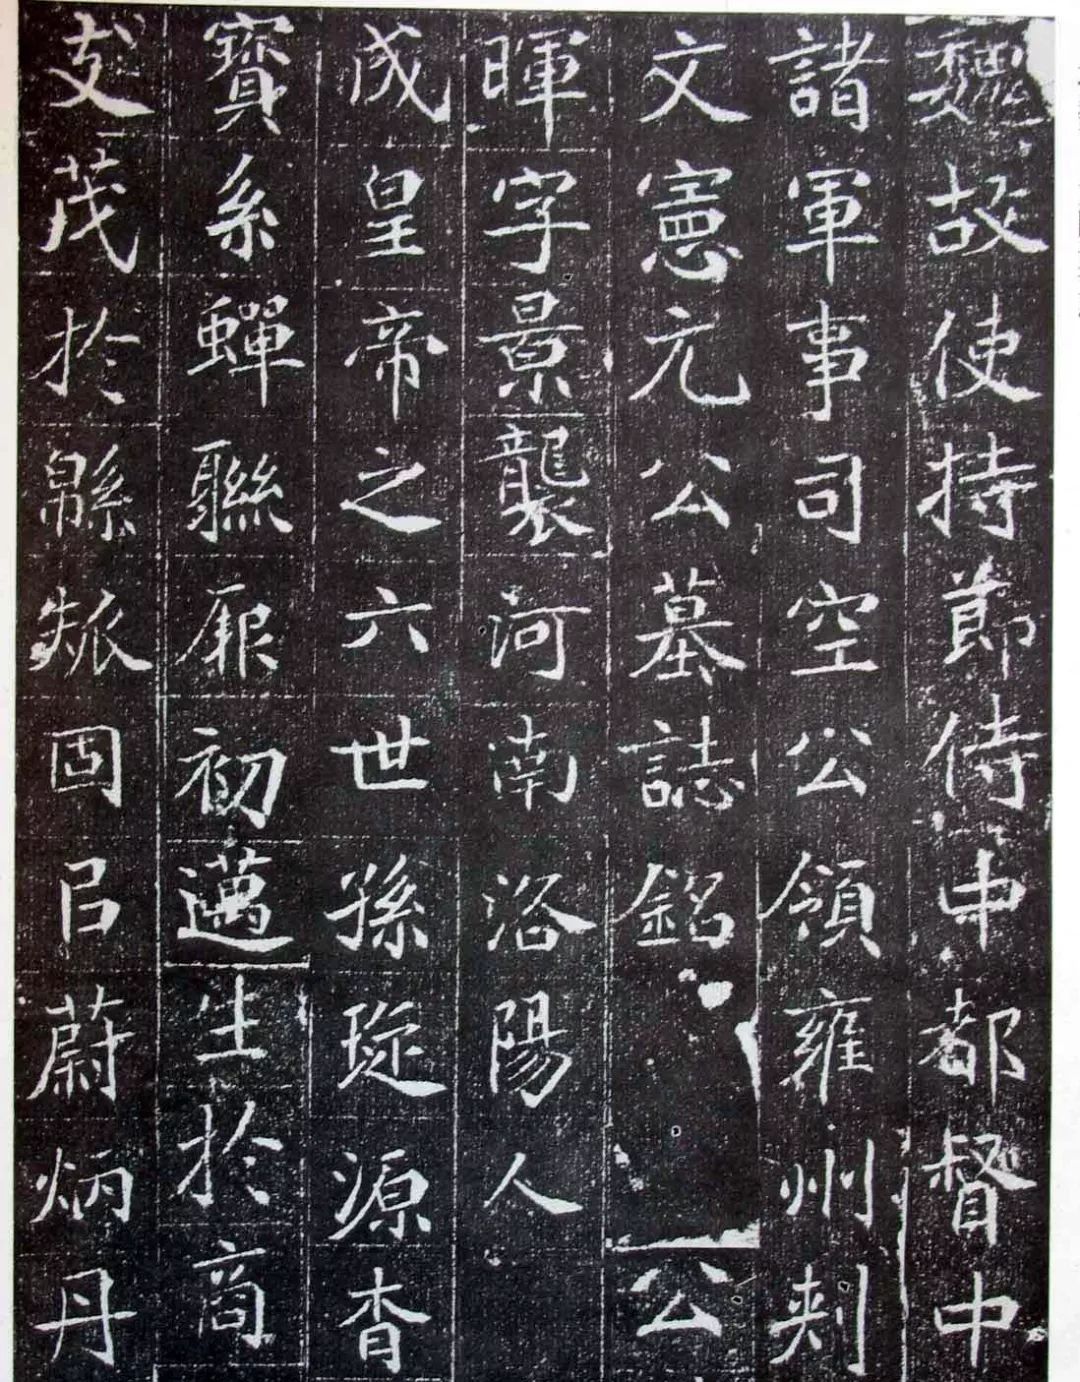 魏故使持節侍中都督中
諸軍事司空公領雍州刾
文憲元公墓誌銘 公
暉字景襲河南洛陽人
成皇帝之六世孫琁源杳
寶系蟬聯厥初邁生於商
支茂於緜瓞固㠯蔚炳丹